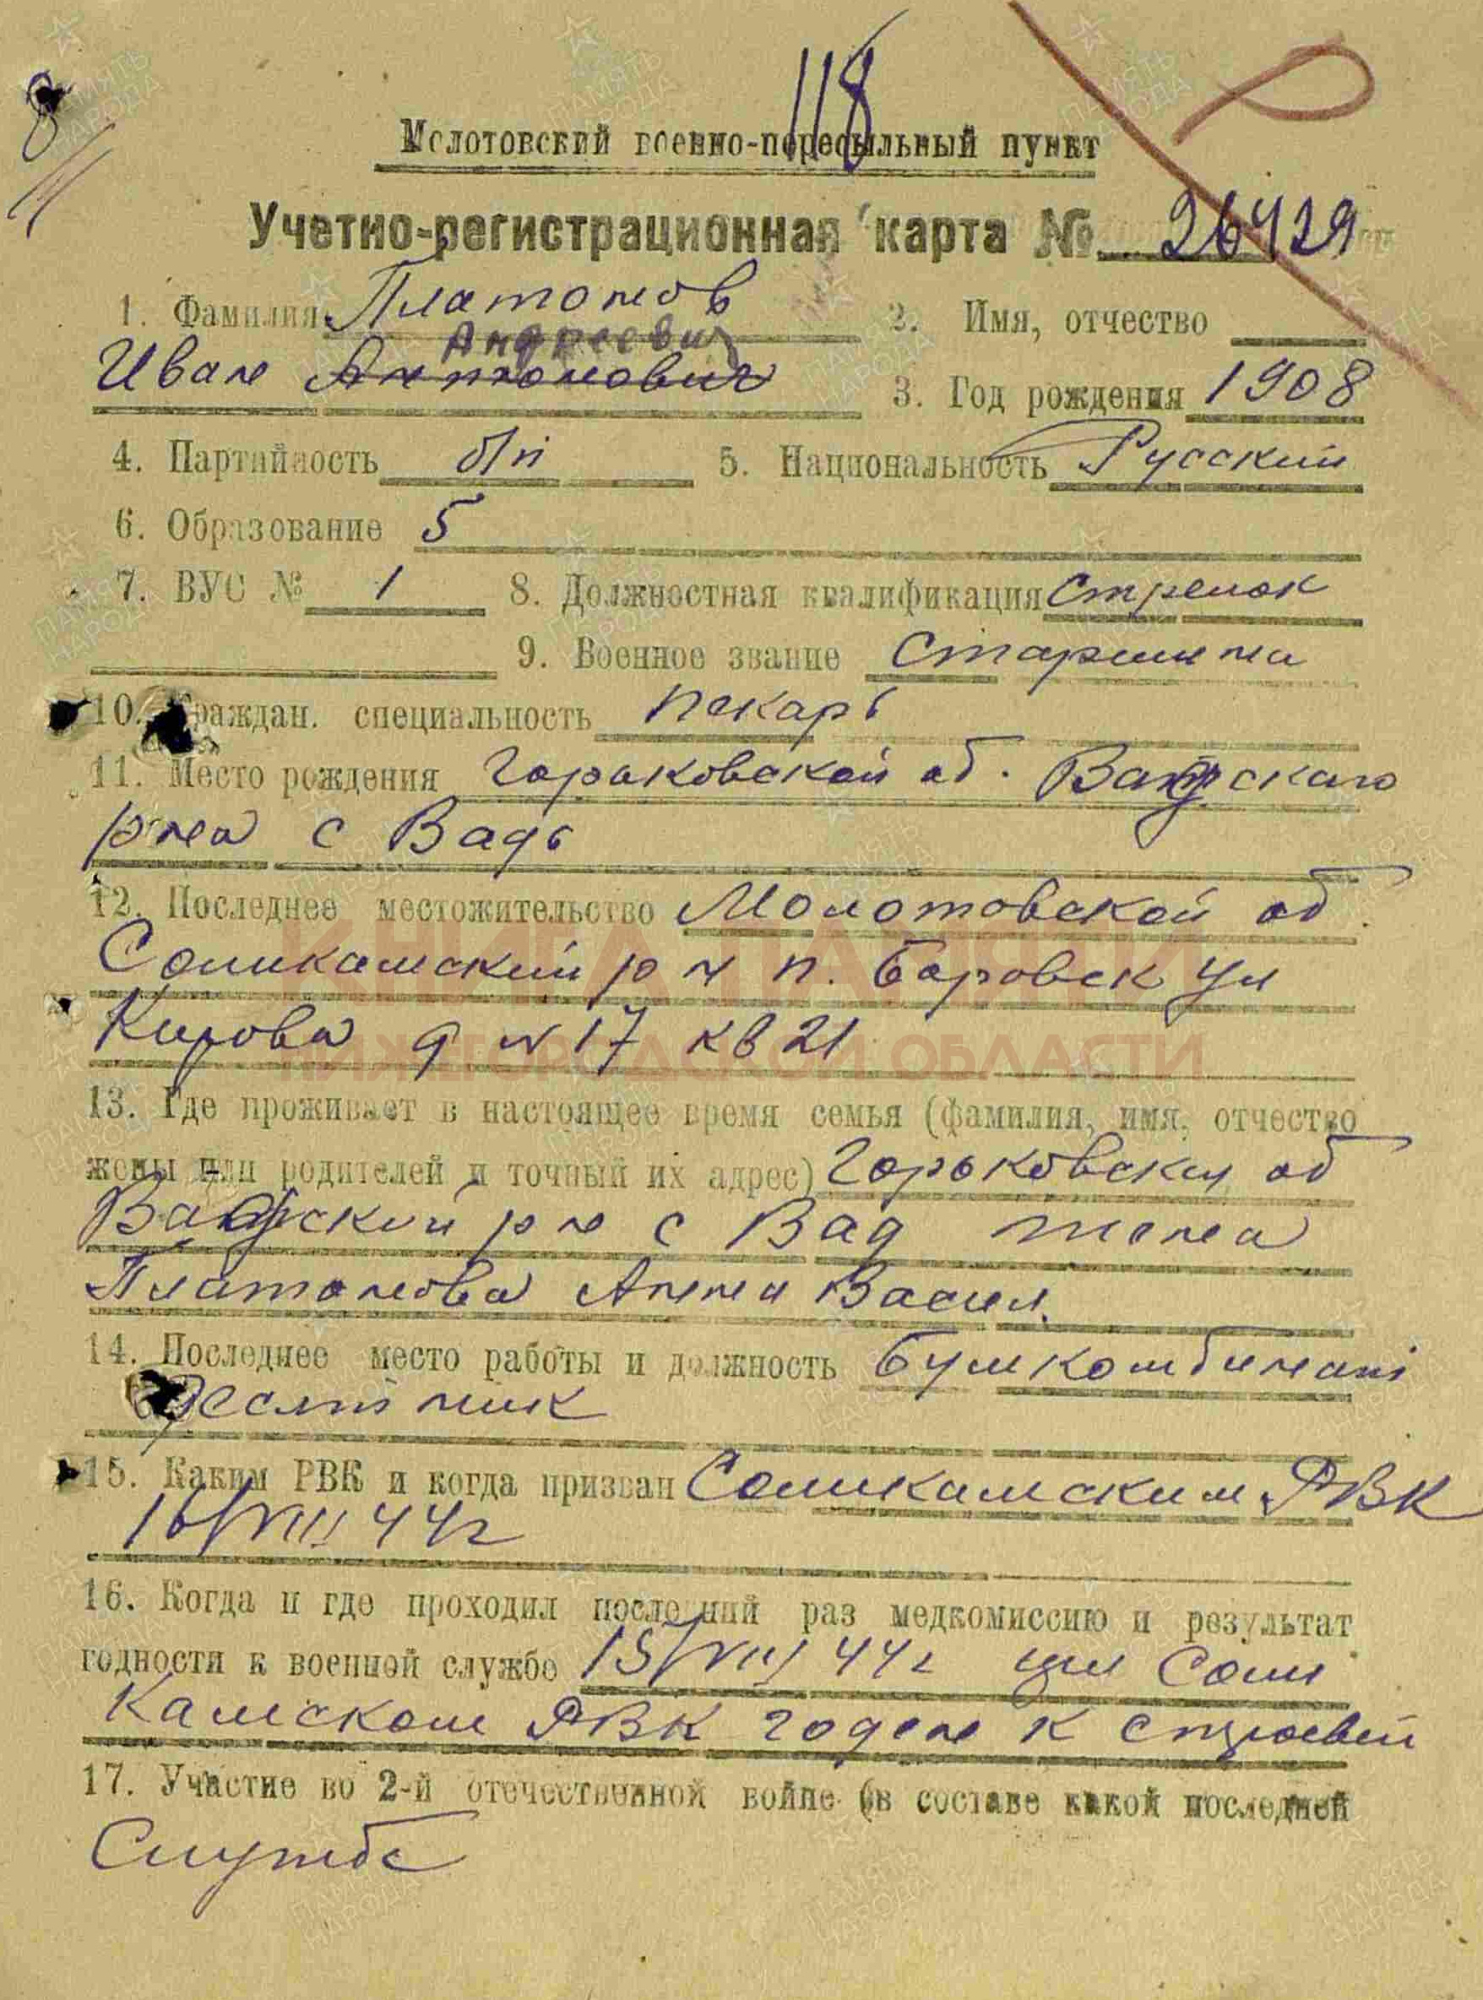 8
118
Молотовский военно-пересыльный пункт
Учетно-регистрационная карта № 26429
1. Фамилия Платонов 2. Имя, отчество
Андреевич
Иван Антонович 3. Год рождения 1908
4. Партийность б/п 5. Национальность Русский
6. Образование 5
7. ВУС № 1 8. Должностная квалификация Стрелок
9. Военное звание Старшина
10. Граждан. специальность пекарь
11. Место рождения Горьковской об. Вадского
р-на с Вадь
12. Последнее местожительство Молотовской об
Соликамский р н п. Боровск ул
Кирова д N 17 кв 21
13. Где проживает в настоящее время семья (фамилия, имя, отчество
жены или родителей и точный их адрес) Горьковская об
Вадский р н с Вад жена
Платонова Анна Васил.
14. Последнее место работы и должность Бумкомбинат
десятник
15. Каким РВК и когда призван Соликамским РВК
16/VIII 44г
16. Когда и где проходил последний раз медкомиссию и результат
годности к военной службе 15/VIII 44г при Соли
камском РВК годен к строевой
17. Участие во 2-й отечественной войне (в составе какой последней
Службе
КНИГА ПАМЯТИ
НИЖЕГОРОДСКОЙ ОБЛАСТИ
ПАМЯТЬ НАРОДА